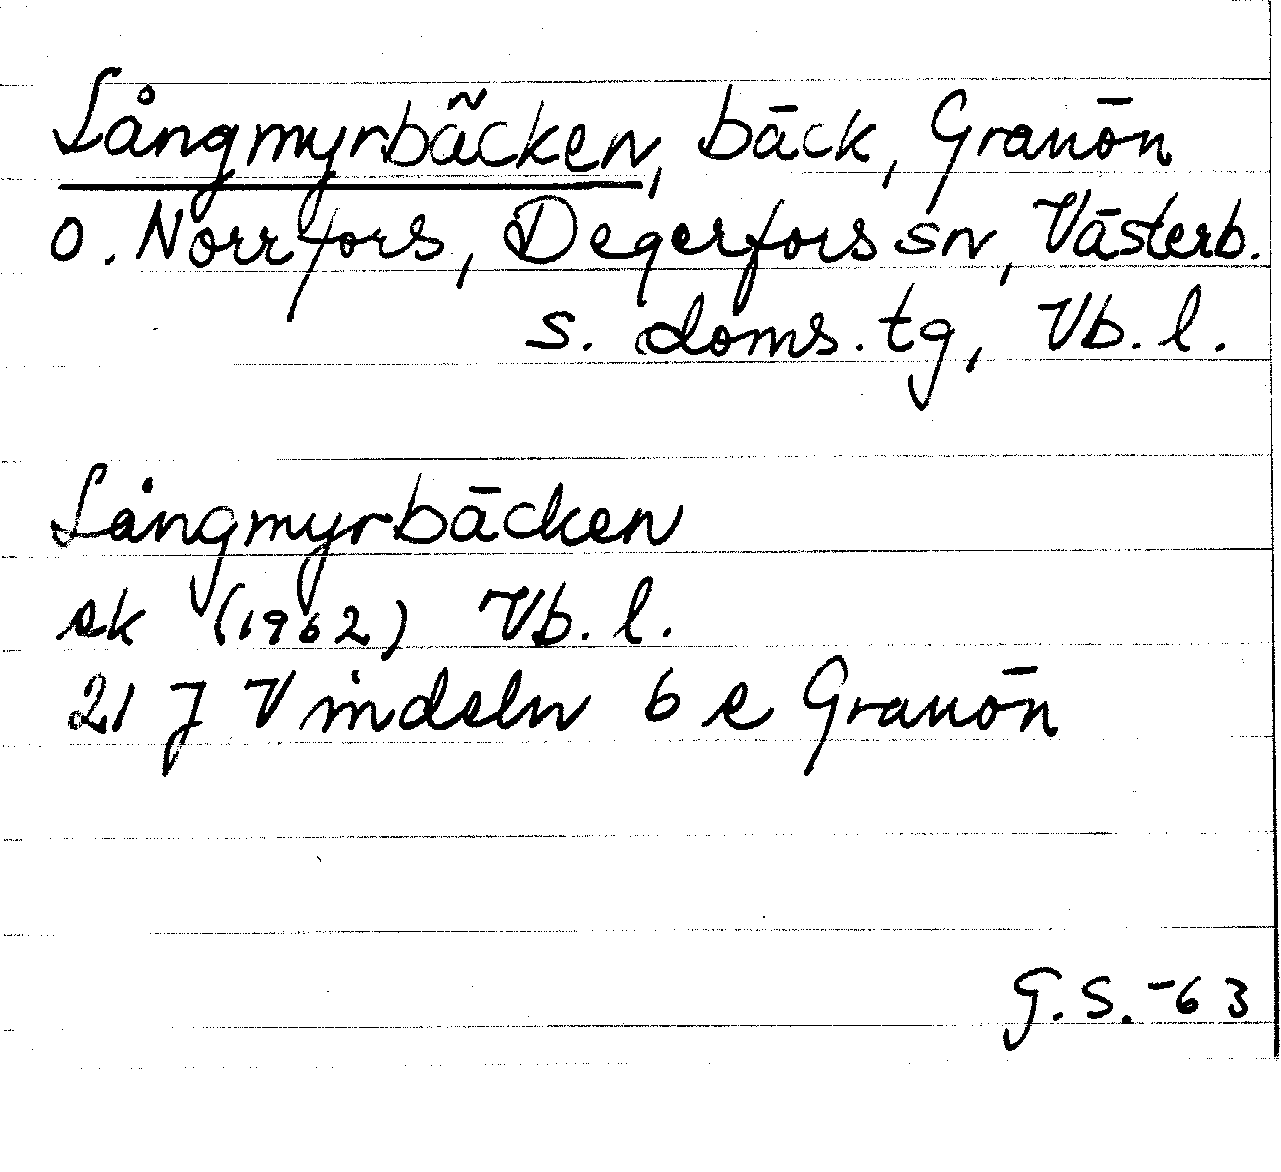 Långmyrbäcken, bäck, Granön
o. Norrfors, Degerfors sn, Västerb.
s. doms. tg, Vb. l.
Långmyrbäcken
ek (1962) Vb. l.
21 J Vindeln 6 e Granön
G.S. -63